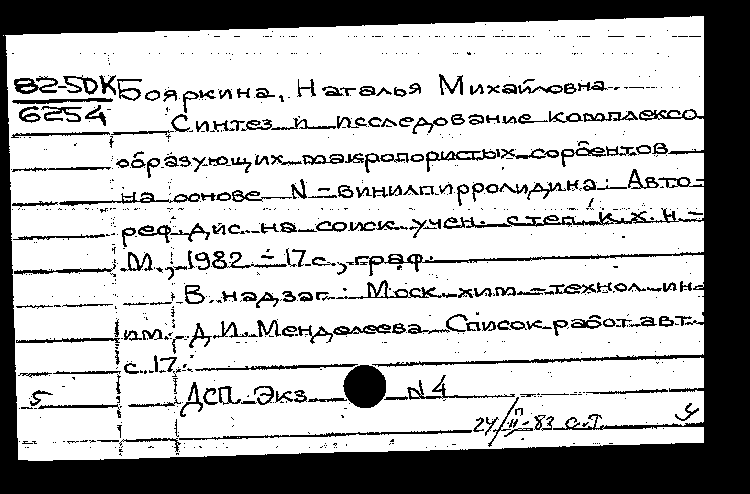 82-5DK Бояркина, Наталья Михайловна.
6254
Синтез и исследование комплексо
образующих макропористых сорбентов
на основе N-винилпирролидина: Авто-
реф. дис. на соиск. учен. степ. к.х.н.-
М., 1982 - 17 с., граф.
В надзаг: Моск. хим.-технол. ин-
им. Д.И. Менделеева Список работ авт.:
с. 17.
5 ДСП Экз N 4
24/II-83 О.Т. У